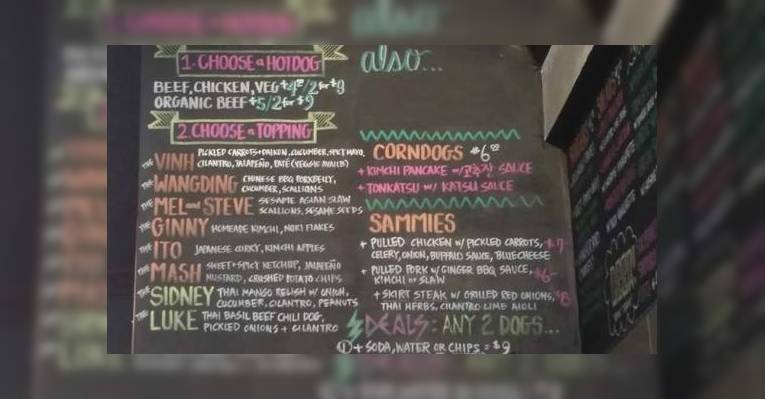 1. CHOOSE a HOTDOG
BEEF, CHICKEN, VEG
ORGANIC BEEF $5/2 for $9
2. CHOOSE a TOPPING
PICKLED CARROTS + DAIKON, CUCUMBER, SPICY MAYO,
THE VINH CILANTRO, JALAPEÑO, PATÉ (VEGGIE AVAILB)
THE WANGDING CHINESE BBQ PORKBELLY,
CUCUMBER, SCALLIONS
THE MEL and STEVE SESAME ASIAN SLAW
SCALLIONS, SESAME SEEDS
THE GINNY HOMEMADE KIMCHI, NORI FLAKES
THE ITO JAPANESE CURRY, KIMCHI APPLES
THE MASH SWEET + SPICY KETCHUP, JALAPEÑO
MUSTARD, CRUSHED POTATO CHIPS
THE SIDNEY THAI MANGO RELISH W/ ONION,
CUCUMBER, CILANTRO, PEANUTS
THE LUKE THAI BASIL BEEF CHILI DOG,
PICKLED ONIONS + CILANTRO
also...
CORNDOGS $6
+ KIMCHI PANCAKE w/ 고추장 SAUCE
+ TONKATSU w/ KATSU SAUCE
SAMMIES
+ PULLED CHICKEN W/ PICKLED CARROTS,
CELERY, ONION, BUFFALO SAUCE, BLUECHEESE
+ PULLED PORK w/ GINGER BBQ SAUCE,
KIMCHI OR SLAW
+ SKIRT STEAK W/ GRILLED RED ONIONS, $8
THAI HERBS, CILANTRO LIME AIOLI
DEALS: ANY 2 DOGS...
① + SODA, WATER OR CHIPS = $9